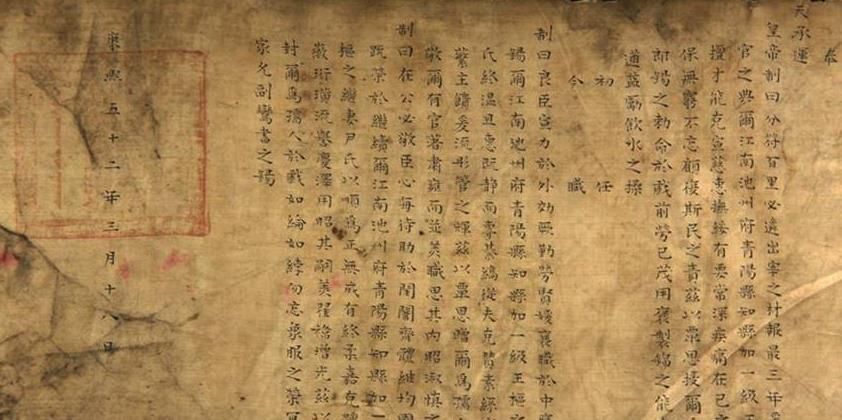 奉
天承運
皇帝制曰分符百里必遴出宰之材報最三年
官之典爾江南池州府青陽縣知縣加一級王
擅才能克宣慈惠撫綏有要常深疾痛在已之
保無窮不忘顧復斯民之責茲以覃恩授爾
郎錫之勅命於戲前勞已茂用褒製錦之能
遒益勵飲氷之操
初任
今職
制曰良臣宣力於外効厥勤勞賢媛襄職於中
錫爾江南池州府青陽縣知縣加一級王樞之
氏終溫且惠既静而專綦縞從夫克贊素絲
蘩主饋爰流彤管之輝茲以覃恩贈爾為孺
敬爾有官著肅雍而並美職思其內昭淑慎之
制曰在公必敬臣心每待助於閨闈齊體維均國
既榮於繼續爾江南池州府青陽縣知縣加一
樞之繼妻尹氏以順為正無成有終柔嘉克
嗣美
增光茲以
封爾為孺人於戲如綸如綍勿忘象服之榮
家允副鸞書之錫
康熙五十二年三月十八日